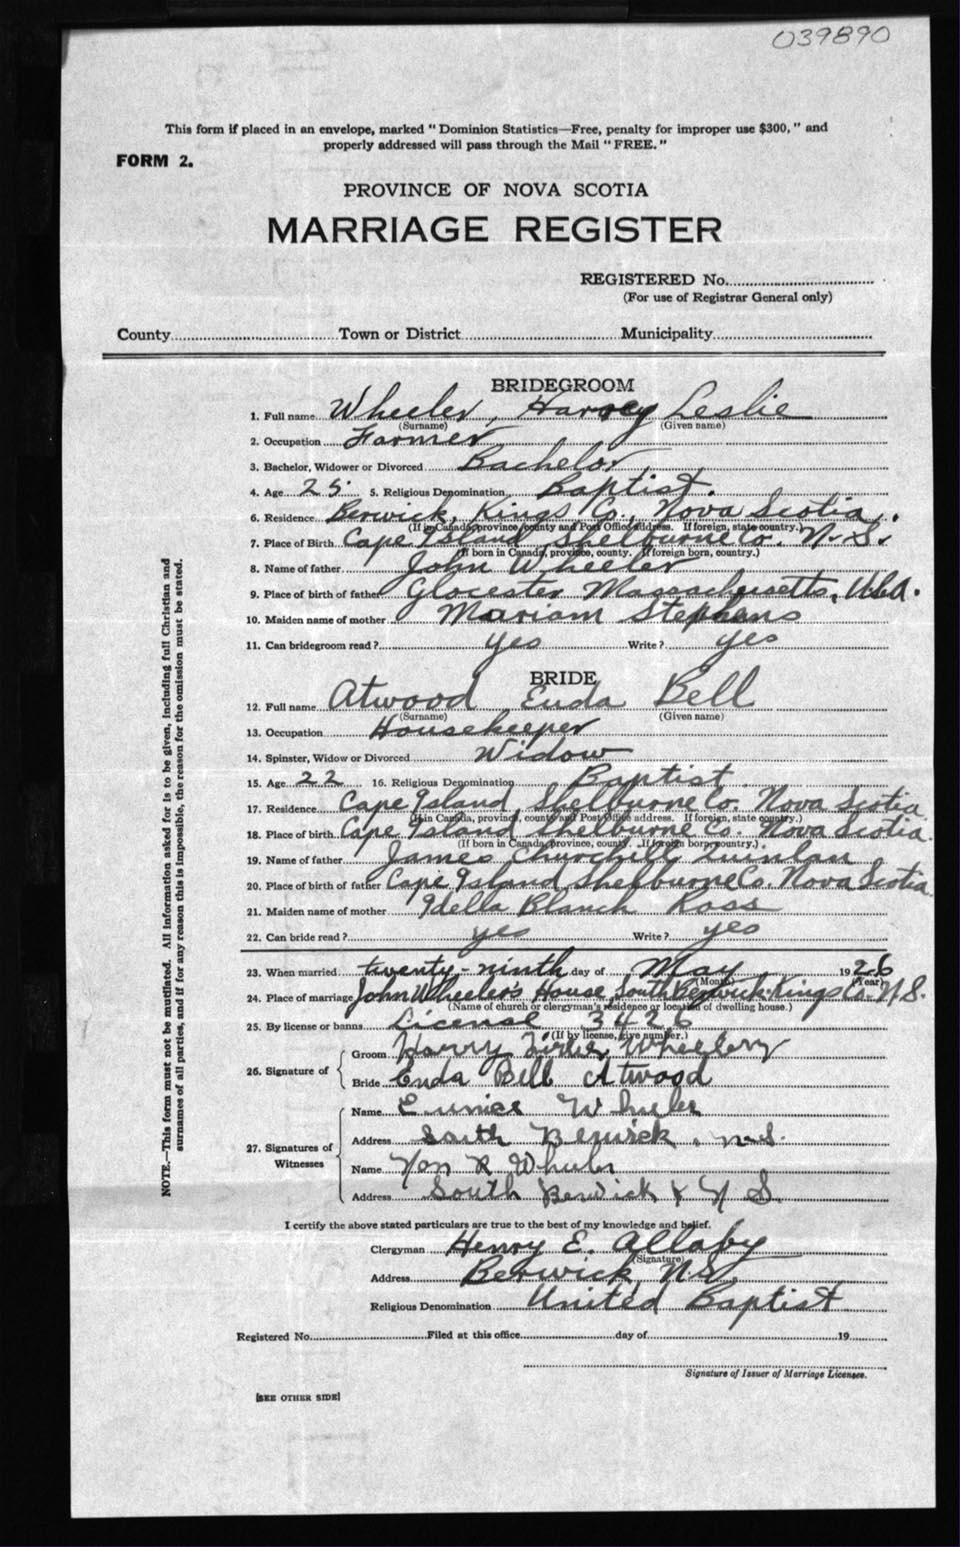 039890
This form if placed in an envelope, marked "Dominion Statistics—Free, penalty for improper use $300," and
properly addressed will pass through the Mail "FREE."
FORM 2.
PROVINCE OF NOVA SCOTIA
MARRIAGE REGISTER
REGISTERED No.
(For use of Registrar General only)
County Town or District Municipality
BRIDEGROOM
1. Full name Wheeler, Harvey Leslie
(Surname) (Given name)
2. Occupation Farmer
3. Bachelor, Widower or Divorced Bachelor
4. Age 25 5. Religious Denomination Baptist.
6. Residence Berwick, Kings Co, Nova Scotia.
(If in Canada, province, county and Post Office address. If foreign, state country.)
7. Place of Birth Cape Island Shelburne Co. N.S.
(If born in Canada, province, county. If foreign born, country.)
8. Name of father John Wheeler
9. Place of birth of father Glocester Massachusetts, U.S.A.
10. Maiden name of mother Mariam Stephens
11. Can bridegroom read? yes Write? yes
BRIDE
12. Full name Atwood Euda Bell
(Surname) (Given name)
13. Occupation Housekeeper
14. Spinster, Widow or Divorced Widow
15. Age 22 16. Religious Denomination Baptist
17. Residence Cape Island Shelburne Co. Nova Scotia
(If in Canada, province, county and Post Office address. If foreign, state country.)
18. Place of birth Cape Island Shelburne Co. Nova Scotia.
(If born in Canada, province, county. If foreign born, country.)
19. Name of father James Churchill Quinlan
20. Place of birth of father Cape Island Shelburne Co. Nova Scotia
21. Maiden name of mother Idella Blanch Ross
22. Can bride read? yes Write? yes
23. When married twenty-ninth day of May 1926
(Month) (Year)
24. Place of marriage John Wheeler's House South Berwick Kings Co. N.S.
(Name of church or clergyman's residence or location of dwelling house.)
25. By license or banns License 3426
(If by license, give number.)
26. Signature of Groom Harry Wheeler
Bride Euda Bell Atwood
27. Signatures of Witnesses Name Eunice Wheeler
Address South Berwick, N.S.
Name R Wheeler
Address South Berwick N S.
I certify the above stated particulars are true to the best of my knowledge and belief.
Clergyman Henry E. Allaby
(Signature)
Address Berwick, N.S.
Religious Denomination United Baptist
Registered No. Filed at this office day of 19
Signature of Issuer of Marriage Licenses.
[SEE OTHER SIDE]
NOTE.—This form must not be mutilated. All information asked for is to be given, including full Christian and
surnames of all parties, and if for any reason this is impossible, the reason for the omission must be stated.